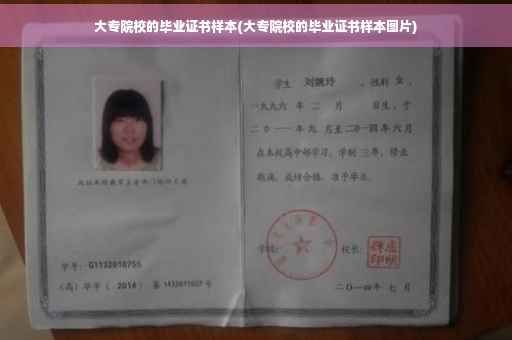 大专院校的毕业证书样本(大专院校的毕业证书样本图片)
学生 刘婉玲 ，性别 女 ，
一九九六 年 二 月 日生，于
二〇一一 年 九 月至 二〇一四 年 六 月
在本校高中部学习，学制 三 年，修业
期满，成绩合格，准予毕业。
学号： G1132010755
（高）毕字（ 2014 ）第 1432011037 号
学校：
校长：
二〇一四年 七 月